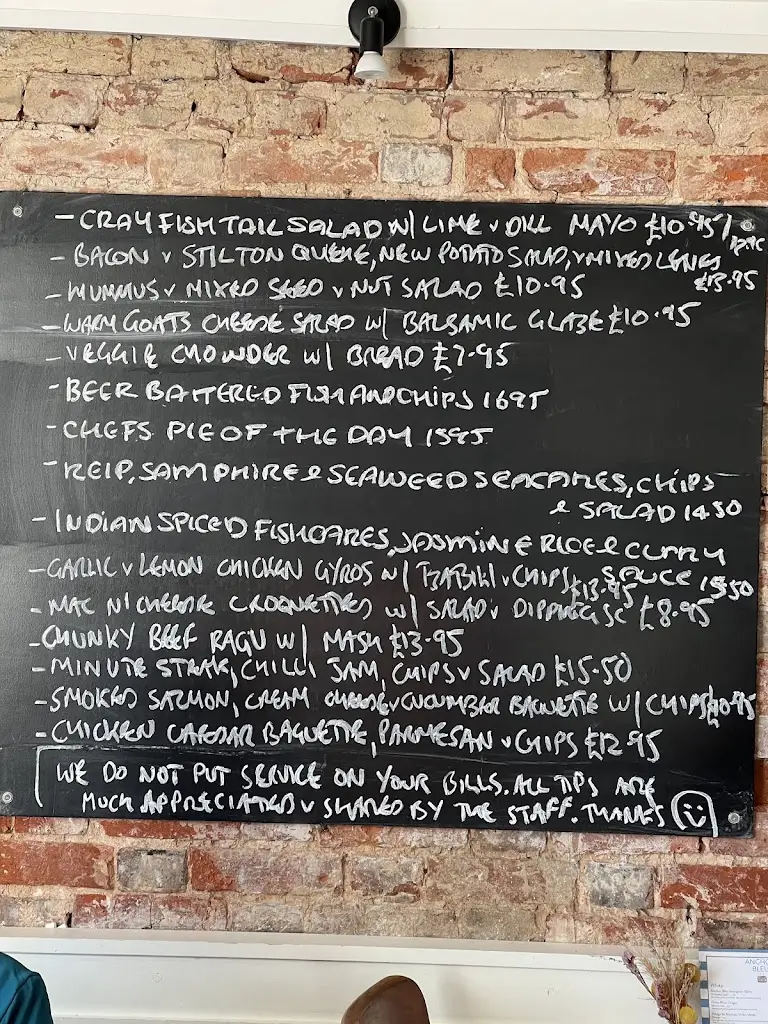 - CRAYFISH TAIL SALAD W/ LIME & DILL MAYO £10.95/
- BACON & STILTON QUICHE, NEW POTATO SALAD, & MIXED LEAVES
£13.95
- HUMMUS & MIXED SEED & NUT SALAD £10.95
- WARM GOATS CHEESE SALAD W/ BALSAMIC GLAZE £10.95
- VEGGIE CHOWDER W/ BREAD £7.95
- BEER BATTERED FISH AND CHIPS 1695
- CHEFS PIE OF THE DAY 1595
- KELP, SAMPHIRE & SEAWEED SEACAKES, CHIPS
& SALAD 1450
- INDIAN SPICED FISHCAKES, JASMINE RICE & CURRY
SAUCE 1550
- GARLIC & LEMON CHICKEN GYROS W/ TZATZIKI & CHIPS £13.95
- MAC N CHEESE CROQUETTES W/ SALAD & DIPPING SC £8.95
- CHUNKY BEEF RAGU W/ MASH £13.95
- MINUTE STEAK, CHILLI JAM, CHIPS & SALAD £15.50
- SMOKED SALMON, CREAM CHEESE & CUCUMBER BAGUETTE W/ CHIPS £10.95
- CHICKEN CAESAR BAGUETTE, PARMESAN & CHIPS £12.95
WE DO NOT PUT SERVICE ON YOUR BILLS. ALL TIPS ARE
MUCH APPRECIATED & SHARED BY THE STAFF. THANKS